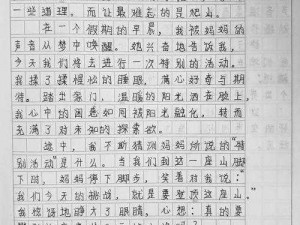 一些道理。而让最难忘的是爬山。
在一个假期的早晨，我被妈妈的
声音从梦中唤醒。她兴奋地告诉我，
今天我们将去进行一次特别的活动。
我揉了揉惺忪的睡眼，满心好奇与期
待。踏出家门，温暖的阳光洒在脸上，
我心中的困惫如同被阳光融化，转而
充满了对未知的探索欲。
途中，我不断猜测妈妈所说的“特
别活动”是什么。当我们到达一座山脚
下时，妈妈停下脚步，笑着对我说：“
我们今天的挑战，就是要登顶这座山。”
我惊讶地睁大了眼睛，心想：真的要